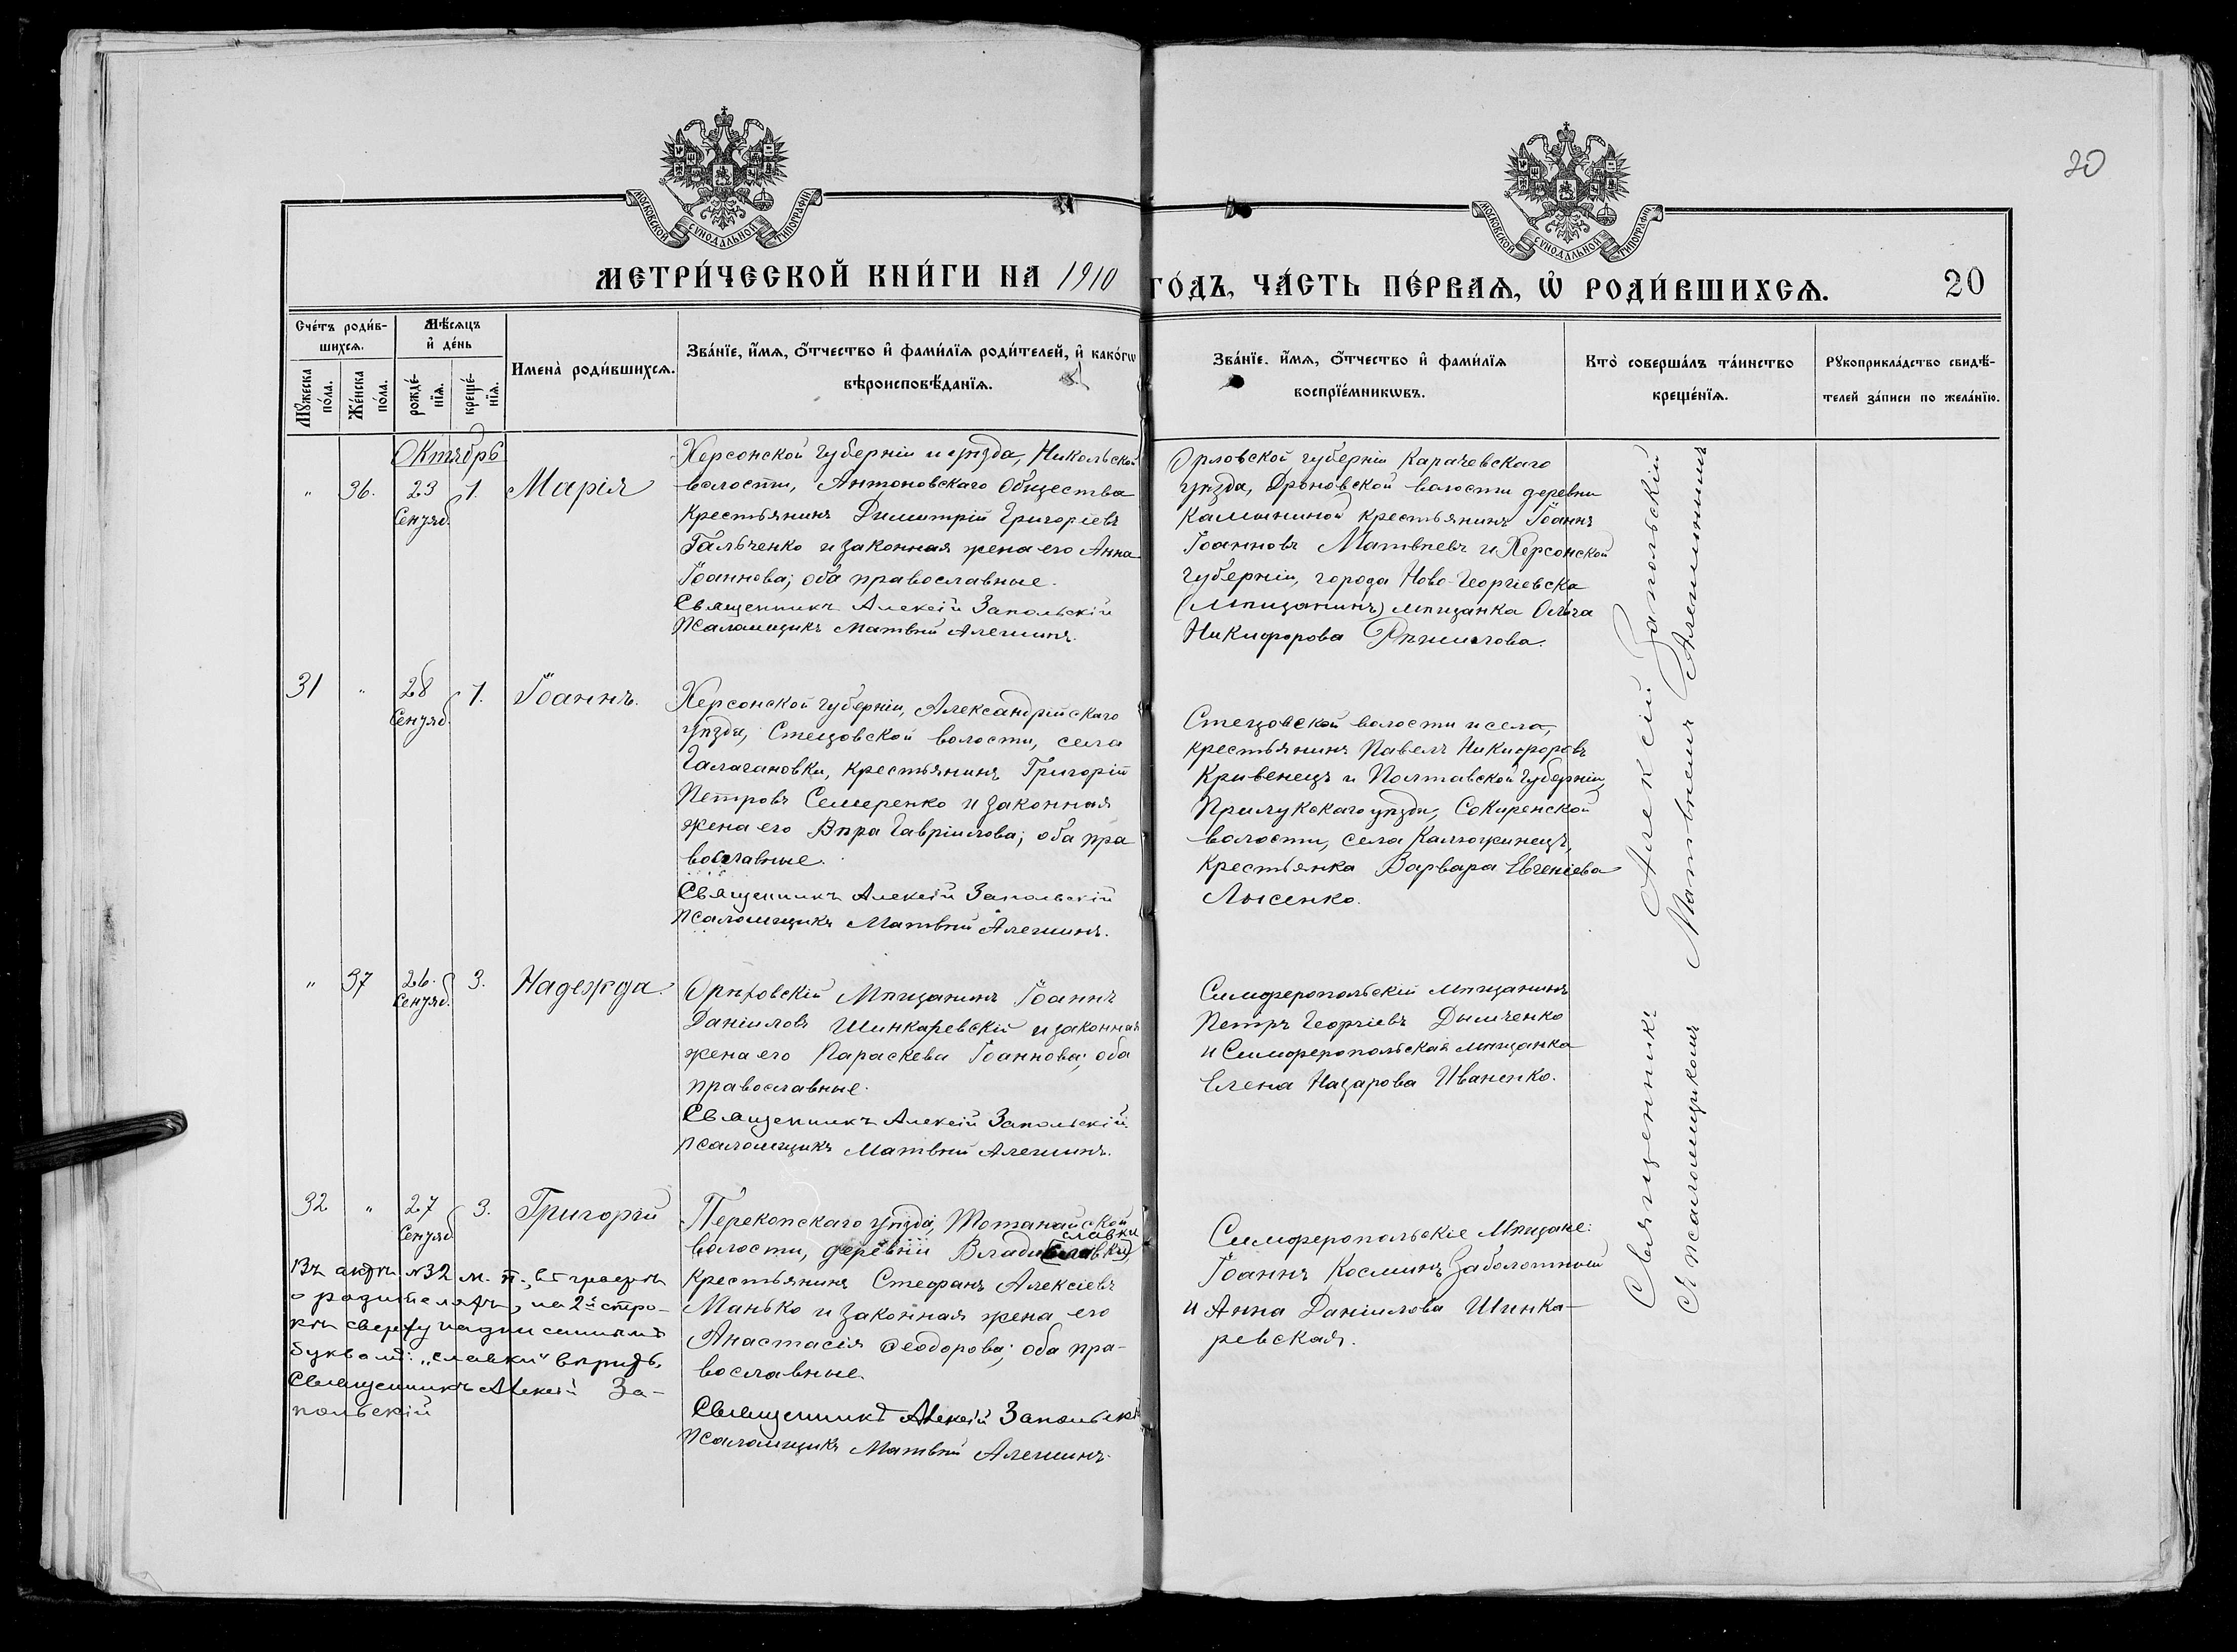 20
МОСКОВСКОЙ СѴНОДАЛЬНОЙ ТИПОГРАФІИ
МОСКОВСКОЙ СѴНОДАЛЬНОЙ ТИПОГРАФІИ
МЕТРИ́ЧЕСКОЙ КНИ́ГИ НА 1910 ГО́ДЪ, ЧА́СТЬ ПЕ́РВАѦ, Ѡ҆ РОДИ́ВШИХСѦ. 20
Сче́тъ роди́в-
шихсѧ.
Мꙋ́жеска по́ла.
Же́нска по́ла.
Мѣ́сѧцъ
и҆ де́нь
рожде́-
нїѧ.
креще́-
нїѧ.
И҆мена̀ роди́вшихсѧ.
Зва́нїе, и҆́мѧ, ѻ҆́тчество и҆ фами́лїѧ роди́телей, и҆ како́гѡ
вѣроисповѣ́данїѧ.
Зва́нїе, и҆́мѧ, ѻ҆́тчество и҆ фами́лїѧ
воспрїе́мникѡвъ.
Кто̀ соверша́лъ та́инство
креще́нїѧ.
Рꙋкоприкла́дство свидѣ́-
телей за́писи по жела́нїю.
Октябрь
" 36. 23 Сентяб. 1. Марія
Херсонской губерніи и уѣзда, Никольской
волости, Антоновскаго Общества
крестьянинъ Димитрій Григоріевъ
Гальченко и законная жена его Анна
Іоаннова; оба православные.
Священникъ Алексій Запольскій
Псаломщикъ Матвѣй Алешинъ.
Орловской губерніи Карачевскаго
уѣзда, Дроновской волости деревни
Калининой крестьянинъ Іоаннъ
Іоанновъ Матвѣевъ и Херсонской
губерніи, города Ново-Георгіевска
(мѣщанинъ) мѣщанка Ольга
Никифорова
31 " 28 Сентяб. 1. Іоаннъ.
Херсонской губерніи, Александрійскаго
уѣзда, Стецовской волости, села
Галагановки, крестьянинъ Григорій
Петровъ Семеренко и законная
жена его Вѣра Гавріилова; оба пра
вославные.
Священникъ Алексій Запольскій
Псаломщикъ Матвѣй Алешинъ.
Стецовской волости и села,
крестьянинъ Павелъ Никифоровъ
Кривенецъ и Полтавской губерніи,
Прилукскаго уѣзда, Сокиренской
волости, села Калюжинецъ,
крестьянка Варвара Евгеніева
Лысенко.
" 37 26. Сентяб. 3. Надежда.
Орѣховскій мѣщанинъ Іоаннъ
Даніиловъ Шинкаревскій и законная
жена его Параскева Іоаннова; оба
православные.
Священникъ Алексій Запольскій
Псаломщикъ Матвѣй Алешинъ.
Симферопольскій мѣщанинъ
Петръ Георгіевъ Дымченко
и Симферопольская мѣщанка
Елена Назарова Иваненко.
32 " 27 Сентяб 3. Григорій
Перекопскаго уѣзда, Тотанайской
славки
волости, деревни Влади(славки),
крестьянинъ Стефанъ Алексіевъ
Манько и законная жена его
Анастасія Ѳеодорова; оба пра-
вославные.
Священникъ Алексій Запольскій
Псаломщикъ Матвѣй Алешинъ.
Въ актѣ №32 м. п., въ графѣ
о родителяхъ, на 2й стро-
кѣ сверху надписаннымъ
буквамъ: „славки" вѣрить.
Священникъ Алексій За-
польскій
Симферопольскіе Мѣщане:
Іоаннъ Косминъ Заболотный
и Анна Даніилова Шинка-
ревская.
Священникъ Алексій Запольскій
Съ псаломщикомъ Матвѣемъ Алешинымъ